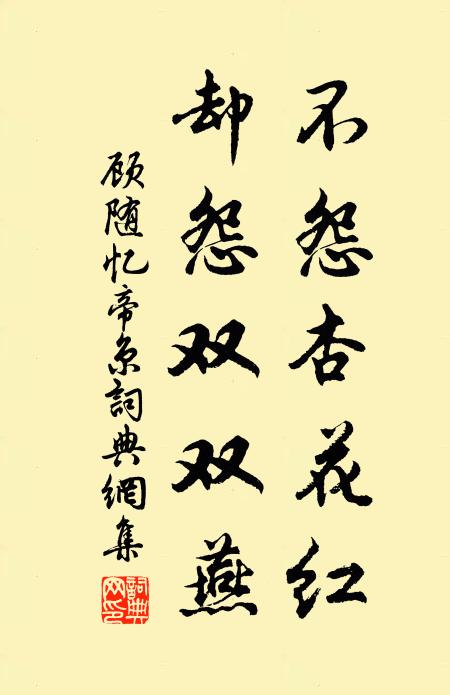 不怨杏花红
却怨双双燕
顾随忆帝京詞典網集
詞典网印